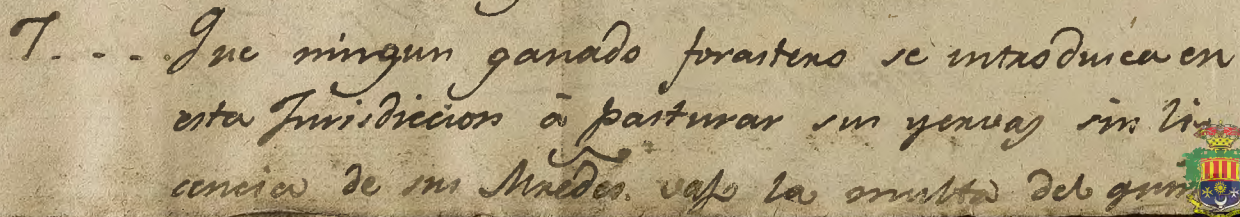 7. - - . Que ningun ganado forastero se introdusca en
esta Jurisdiccion â pasturar sus yervas sin li-
cencia de sus Mrcedes. vajo la multa del